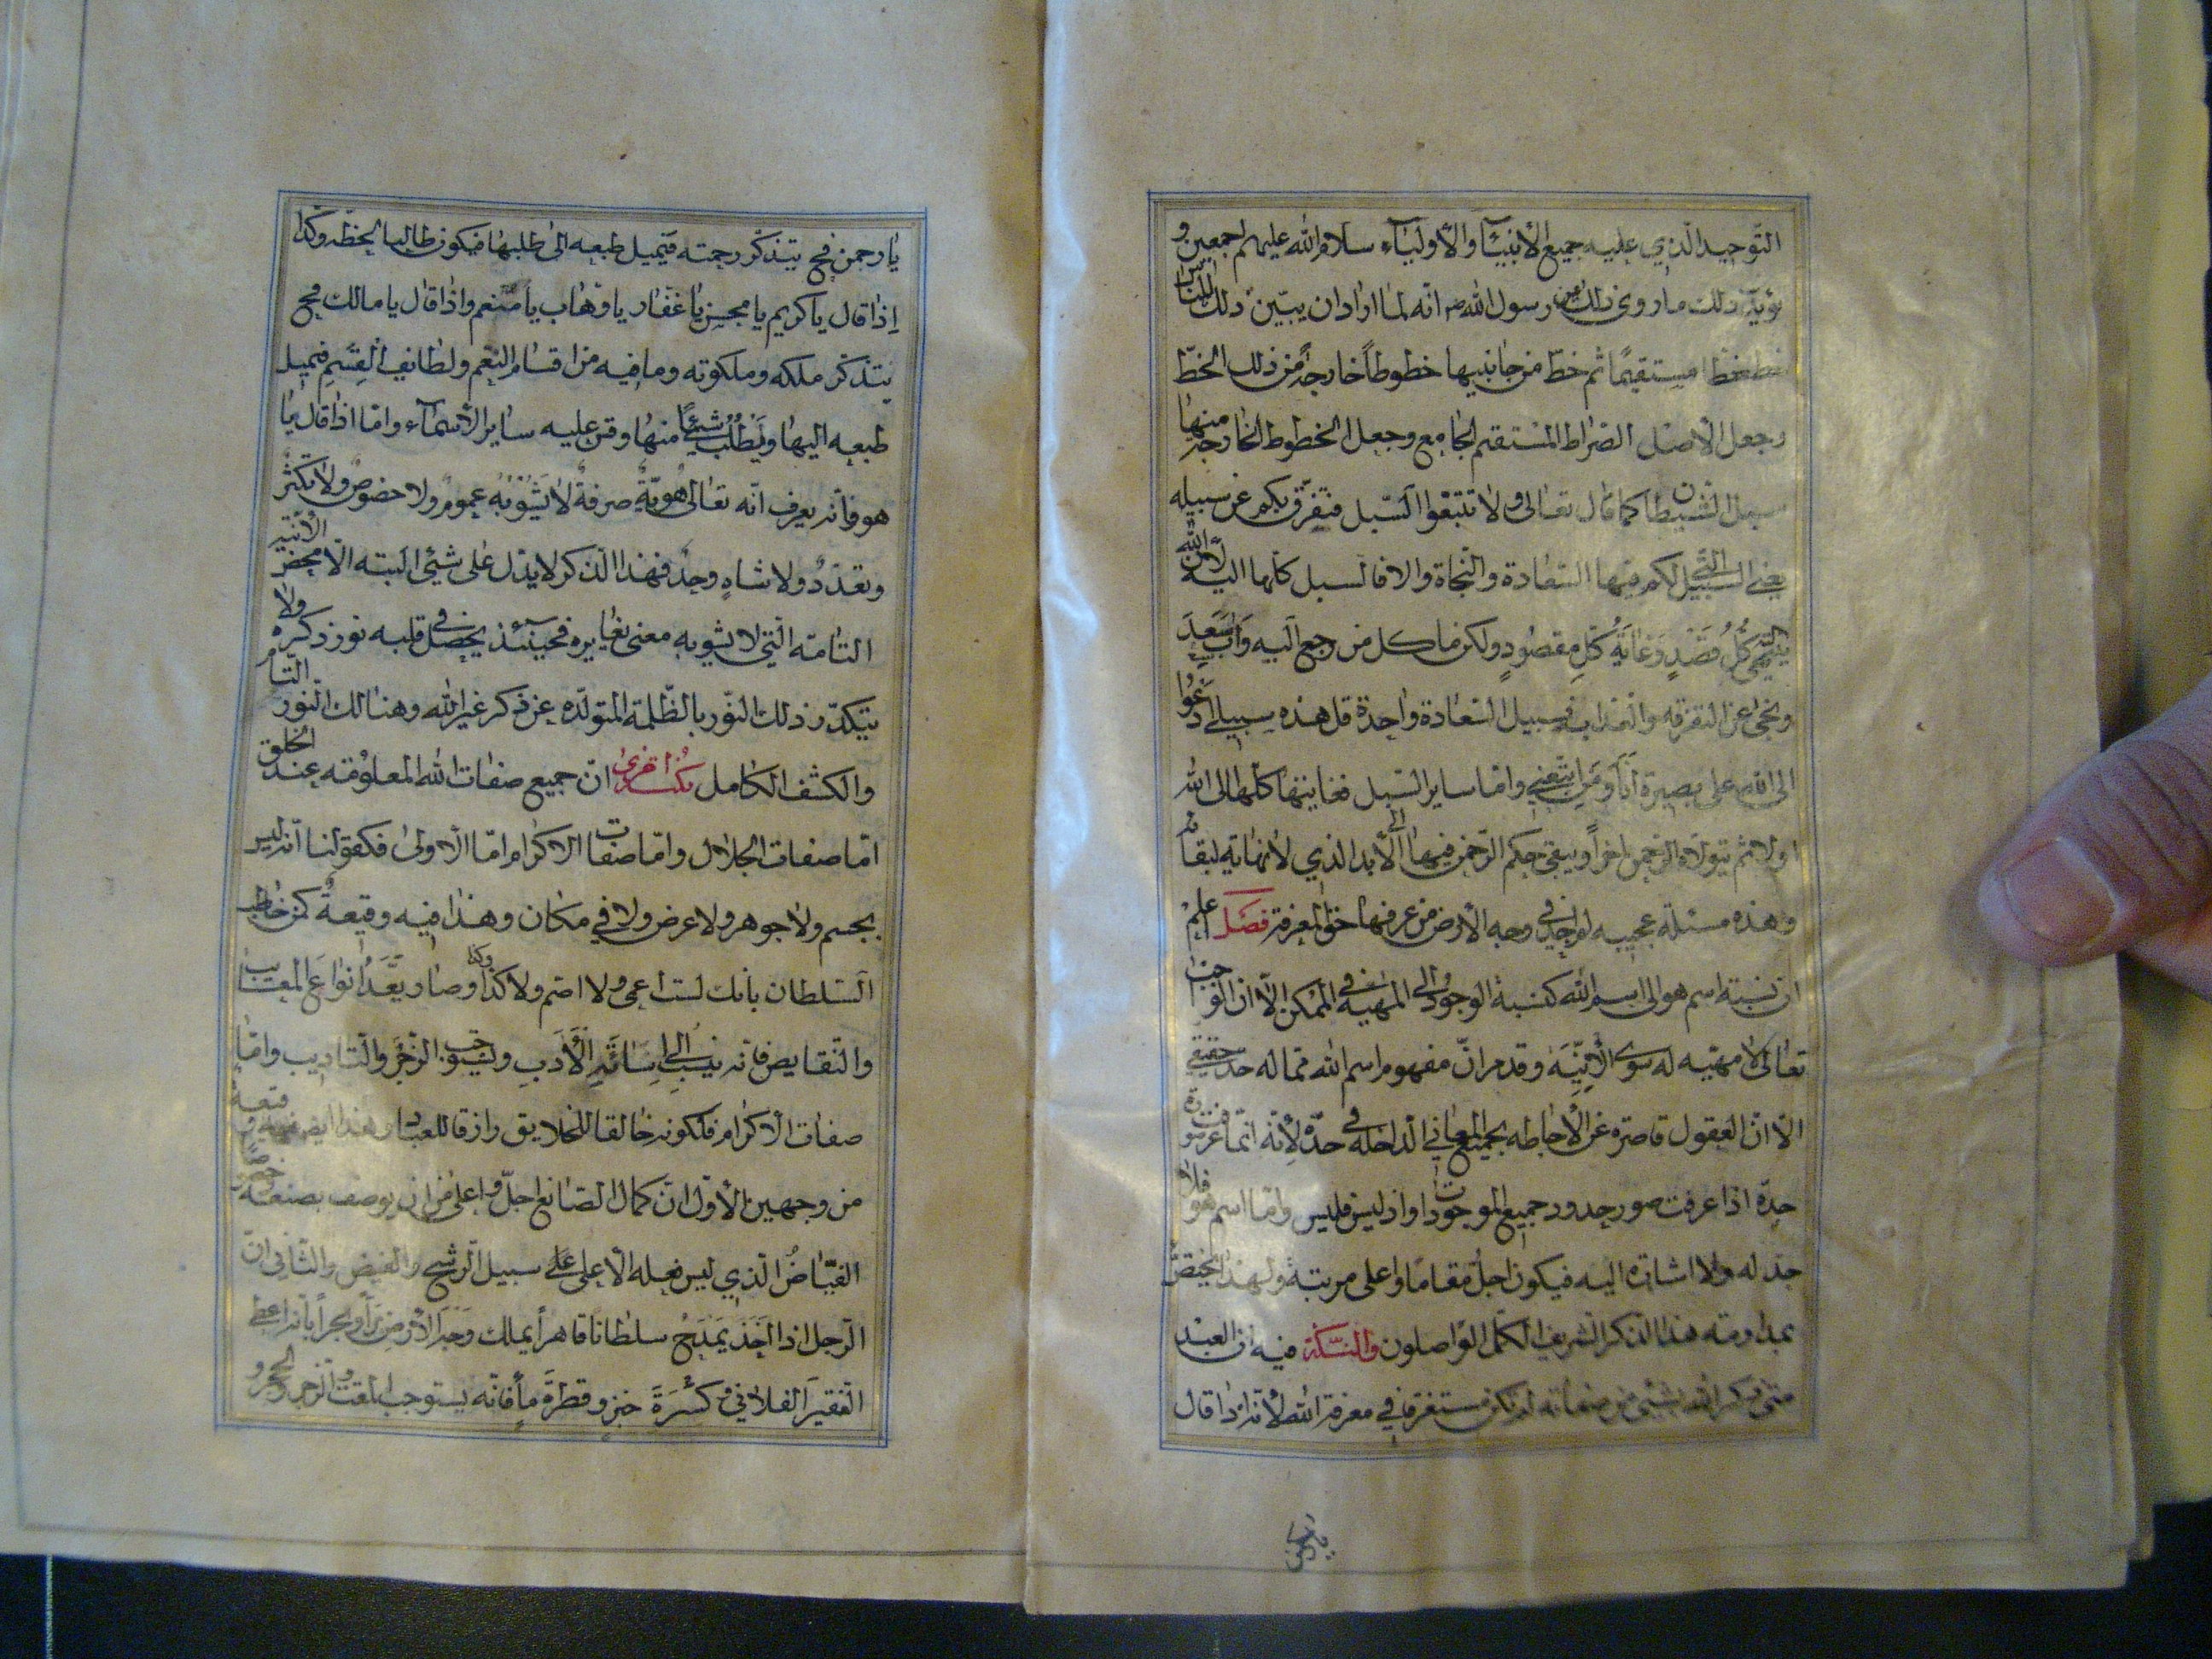 التّوحيد الّذي عليه جميع الأنبيآء والأوليآء سلام الله عليهم اجمعين و
يؤيّد ذلك ما روى ذلك عن رسول الله ص انّه لمّا اراد ان يبيّن ذلك للناس
خط خطا مستقيمًا ثم خطّ من جانبيها خطوطاً خارجة من ذلك الخطّ
وجعل الأصل الصّراط المستقيم الجامع وجعل الخطوط الخارجة منها
سبيل الشيطان كما قال تعالى ولا تتبعوا السّبل فتفرّق بكم عن سبيله
يعني السبيل التي لكم فيها السّعادة والنّجاة والا فالسبل كلّها اليه لأنّ الله
كلُّ قَصْدٍ وغايةُ كلّ مقصُودٍ ولكن ما كل من رجع اليه وآب سَعِدَ
ونجى عن التفرقه والعذاب فسبيل السّعادة واحدة قل هذه سبيلي ادعوا
الى الله على بصيرة أنا ومن اتّبعني وامّا ساير السّبل فغايتها كلّها الى الله
اولا ثم يتولاه الرّحمن اخراً ويبقى حكم الرّحمن فيها الى الأبد الذي لا نهاية لبقائه
وهذه مسئلة عجيبه لم اجد في وجه الأرض من عرفها حق المعرفة فصل اعلم
ان نسبة اسم هو الى اسم الله كنسبة الوجود الى المهيّه في الممكن الّا ان الواجب
تعالى لا مهيّه له سوى الأنّيّة وقد مر انّ مفهوم اسم الله ممّا له حد حقيقي
الّا انّ العقول قاصرة عن الأحاطه بجميع المعاني الدّاخله في حدّه لأنّه انّما عرفت صورة
حدّه اذا عرفت صور حدود جميع الموجودات واذ ليس فليس وامّا اسم هو فلا
حدّ له ولا اشارة اليه فيكون اجلّ مقاما واعلى مرتبة ولهذا يختصّ
بمداومة هذا الذكر الشريف الكمّل الواصلون والنّكتة فيه ان العبد
متى ذكر الله بشئ من صفاته لم يكن مستغرقا في معرفة الله لأنّه اذا قال
يا رحمن
يا رحمن فح يتذكّر رحمته فيميل طبعه الى طلبها فيكون طالبا لحظّه وكذا
اذا قال يا كريم يا محسن يا غفّار يا وهّاب يا منعم واذا قال يا مالك فح
يتذكّر ملكه وملكوته وما فيه من اقسام النّعم ولطائف القِسَم فيميل
طبعه اليها ويَطْلُب شيئًا منها وقس عليه ساير الأسمآء وامّا اذا قال يا
هو فانّه يعرف انّه تعالى هويّةٌ صرفةٌ لا يَشُوْبُهُ عمومٌ ولا خصوصٌ ولا تكثّرٌ
وتعدّدٌ ولا تناهٍ وحدٌّ فهذا الذّكر لا يدّل على شئي البته الّا محض الأنّيّة
التامّه الّتي لا يشوبه معنى يغايره فحينئذ يحصل في قلبه نور ذكره ولا
يتكدّر ذلك النّور بالظّلمة المتولّده عن ذكر غير الله وهنالك النّور التّامّ
والكشف الكامل نكتة اخرى انّ جميع صفات الله المعلومة عند الخلق
امّا صفات الجلال وامّا صفات الاكرام امّا الاولى فكقولنا انّه ليس
بجسم ولا جوهر ولا عرض ولا في مكان وهذا فيه وقيعةٌ كمن خاطب
السّلطان بانك لست اعمى ولا اصم ولا كذا وكذا وصار يَعُدّ انواع المعايب
والنّقايص فانّه ينسب الى اسَائَةِ الأَدَبِ ويستوجب الزّجر والتاديب وامّا
صفات الاكرام فلكونه خالقا للخلايق رازقا للعباد وهذا ايضا فيه وقيعة
من وجهين الأوّل انّ كمال الصّانع اجلّ واعلى من ان يوصف بصنعه خصوصا
الفيّاضُ الّذي ليس فعله الّا على على سبيل الرّشح والفيض والثّاني انّ
الرّجل اذا اَخَذ يَمْدَحُ سلطانا قاهراً يملك وجه الأرض برّاً وبحراً بانّه اعطى
الفقيرَ الفلانيّ كسْرَةَ خبزٍ وقطرةَ مآءٍ فانّه يستوجب المقت والزجر والحجر و